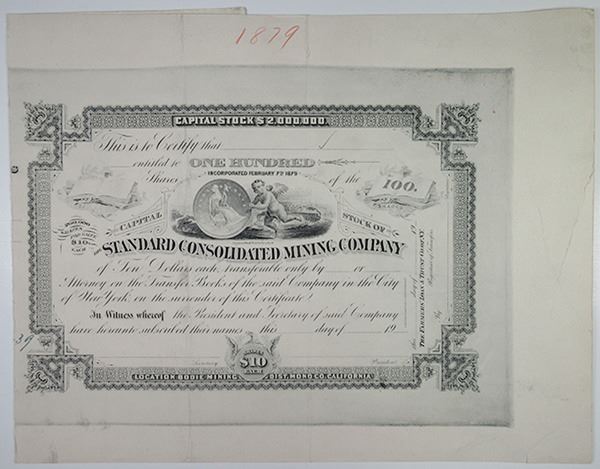 1879
CAPITAL STOCK $2,000,000.
This is to Certify that
entitled to ONE HUNDRED
INCORPORATED FEBRUARY 7TH 1879
Shares of the
100.
CAPITAL STOCK OF
200,000 SHARES
PAR VALUE
$10.00
EACH
THE STANDARD CONSOLIDATED MINING COMPANY
of Ten Dollars each, transferable only by or
Attorney on the Transfer Books of the said Company in the City
of New York, on the surrender of this Certificate.
In Witness whereof the President and Secretary of said Company
have hereunto subscribed their names this day of 19
day of 19
THE FARMERS' LOAN & TRUST COMPANY
By
Registrar of Transfers
39
Secretary
President
SHARES
$10
EACH
LOCATION BODIE MINING DIST. MONO CO. CALIFORNIA